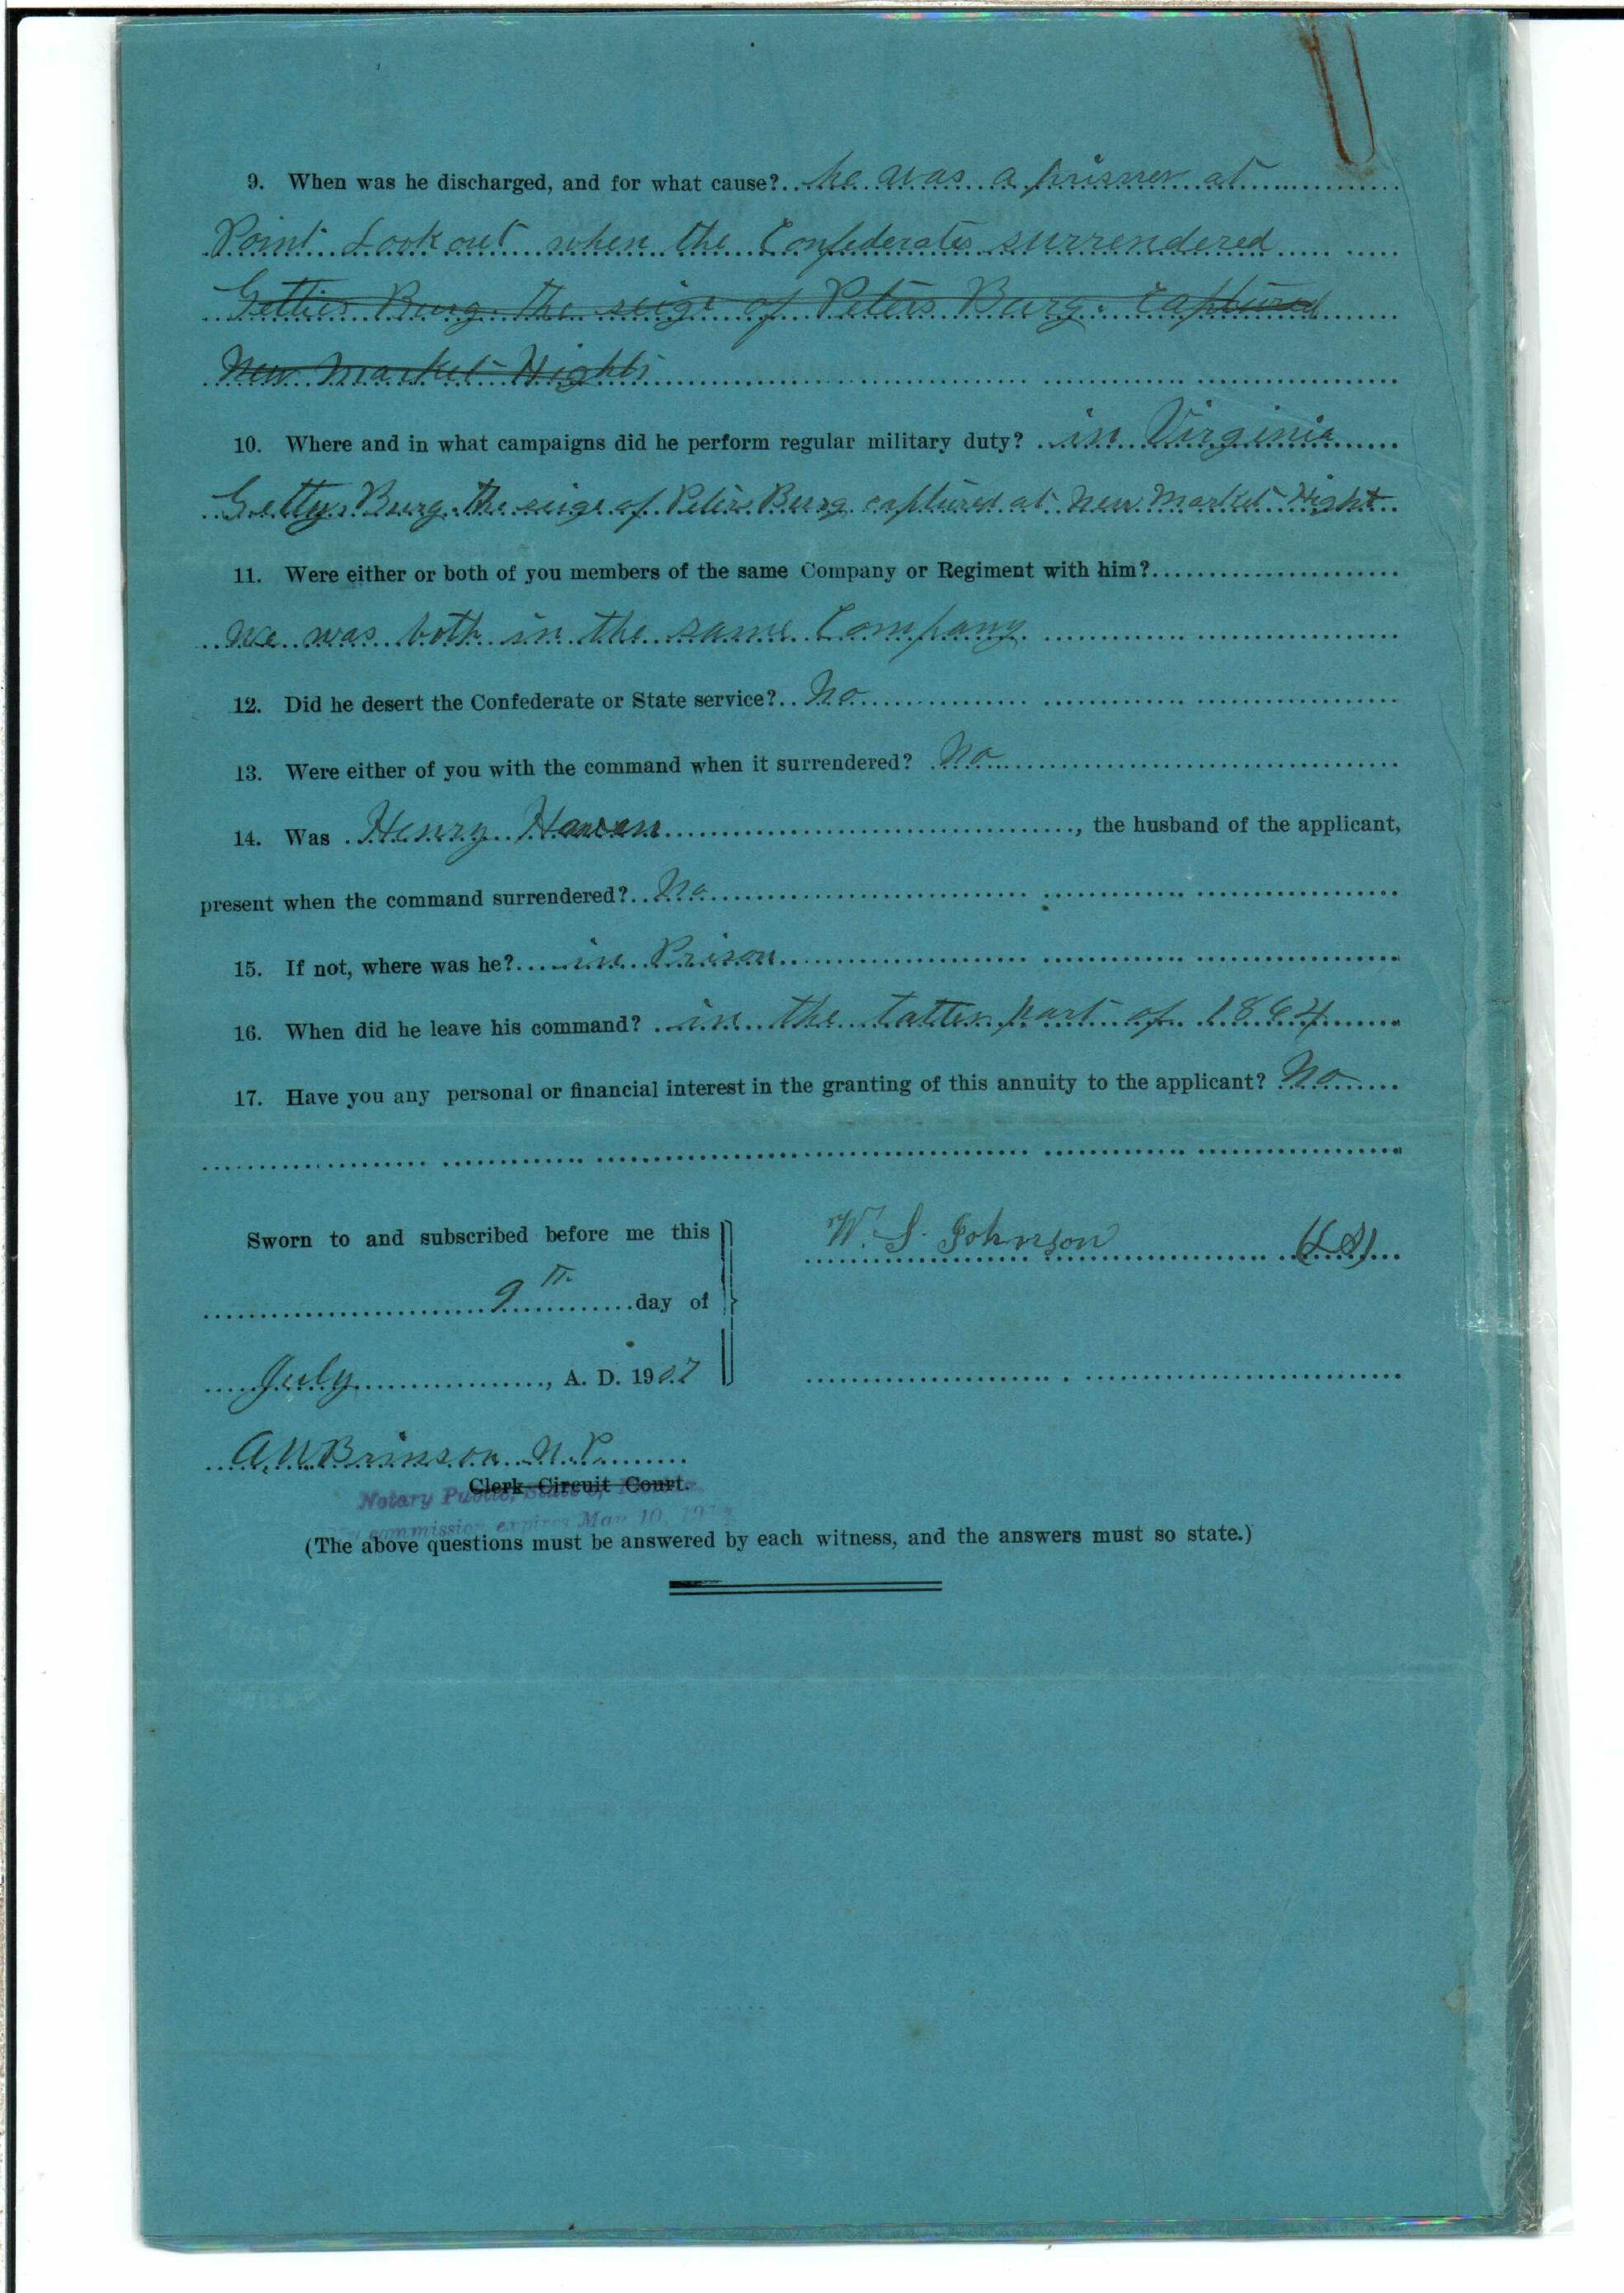 9. When was he discharged, and for what cause? he was a prisner at
Point Look out when the Confederates surrendered
Getties Burg. the seige of Peters Burg. Captured
New Market Hights
10. Where and in what campaigns did he perform regular military duty? in Virginia
Gettys Burg. the seige of Peters Burg captured at New Market Hight
11. Were either or both of you members of the same Company or Regiment with him?
we was both in the same Company
12. Did he desert the Confederate or State service? No
13. Were either of you with the command when it surrendered? No
14. Was Henry , the husband of the applicant,
present when the command surrendered? No
15. If not, where was he? in Prison
16. When did he leave his command? in the latter part of 1864
17. Have you any personal or financial interest in the granting of this annuity to the applicant? No
Sworn to and subscribed before me this
W. S. Johnson (LS)
9th day of
July, A. D. 1907
A W Brinson N. P.
Clerk Circuit Court.
Notary Public, State of
commission expires Mar 10,
(The above questions must be answered by each witness, and the answers must so state.)